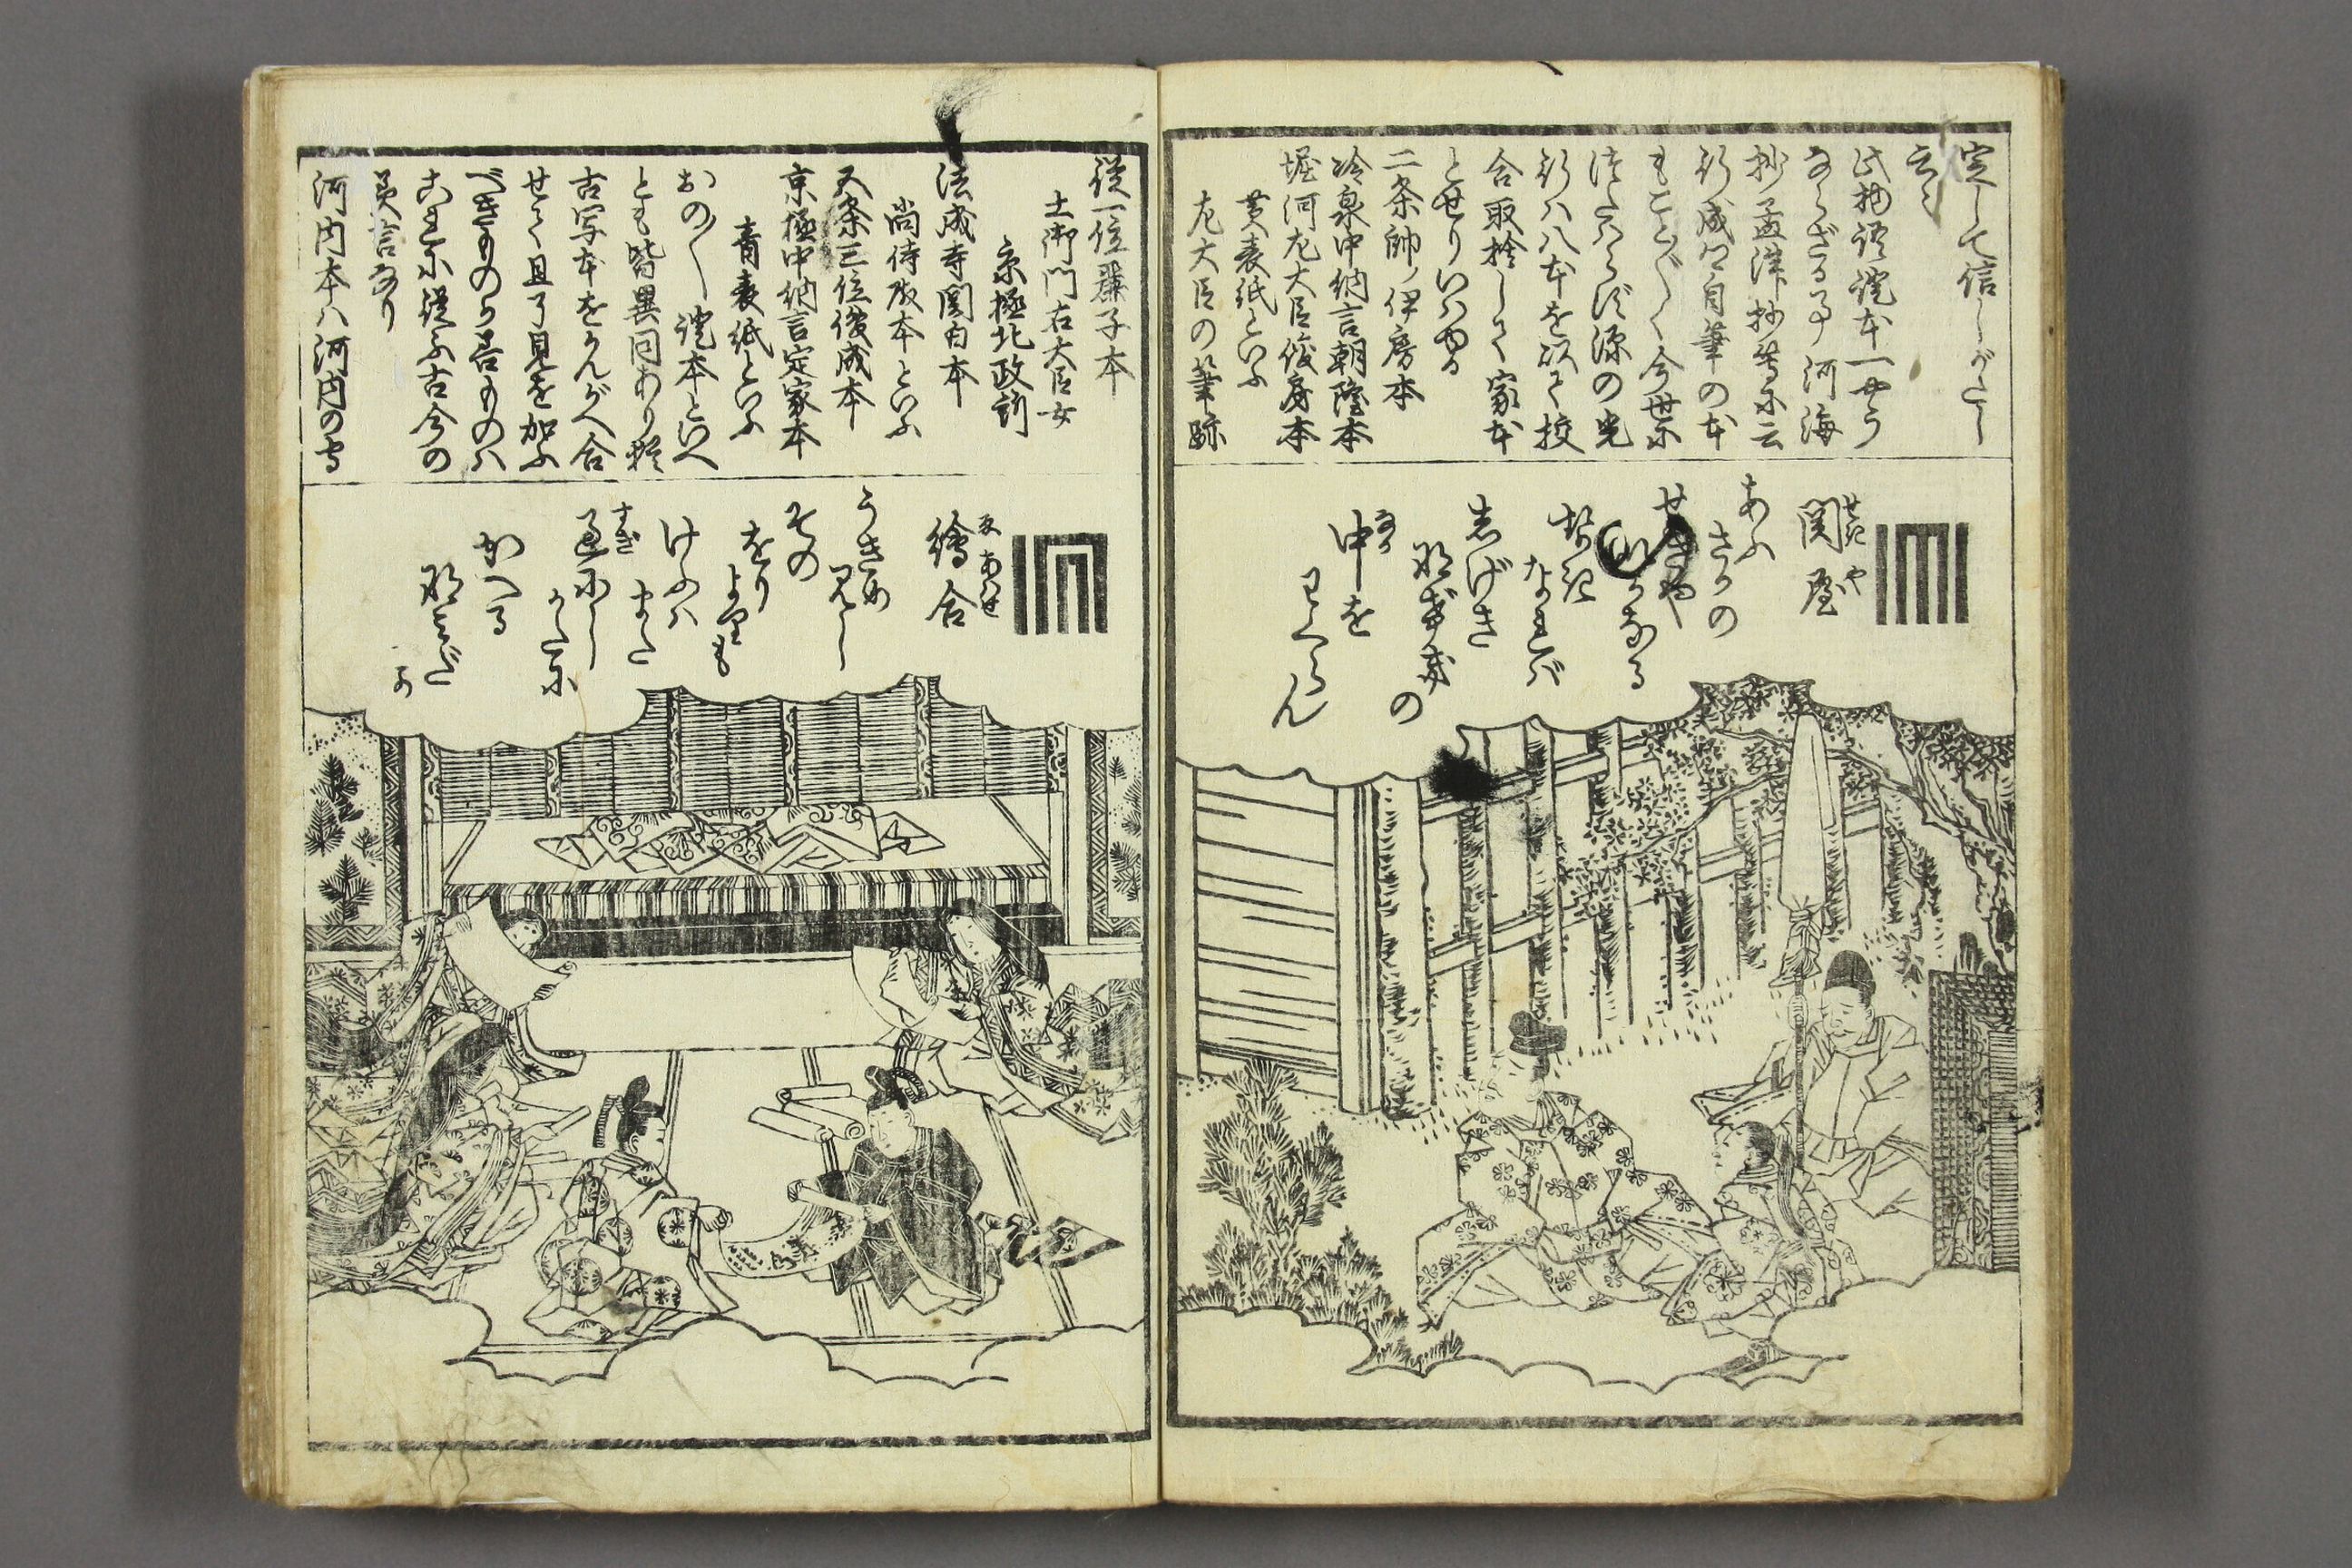 定して信じがたし
云々
此物語証本一やう
ならざる事河海
抄孟津抄等に云
行成卿自筆の本
もこと〴〵く今世に
つたはらず源の光
行ハ八本を以て校
合取捨して家本
とせりいはゆる
二条帥ノ伊房本
冷泉中納言朝隆本
堀河左大臣俊房本
黄表紙といふ
左大臣の筆跡
関屋
せきや
あふ
さかの
せきや
いかなる
せき
なれば
しげき
なげきの
中を
なか
わくらん
従一位麗子本
土御門右大臣女
京極北政所
法成寺関白本
尚侍殿本といふ
五条三位俊成本
京極中納言定家本
青表紙といふ
おの〳〵証本といへ
とも皆異同あり
古写本をかんがへ合
せて且了見を加ふ
べきものか若ものハ
これに従ふ古今の
美言なり
河内本ハ河内の守
繪合
ゑあはせ
うきめ
見し
その
をり
よりも
けふハ
また
過にし
すぎ
かたに
かへる
なみだ
か